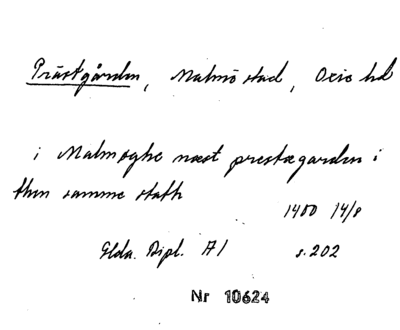 Prästgården, Malmö stad, Oxie hd
i Malmøghe næst prestægarden i
then samme stath
1400 14/8
Glda. Dipl. A1 s. 202
Nr 10624